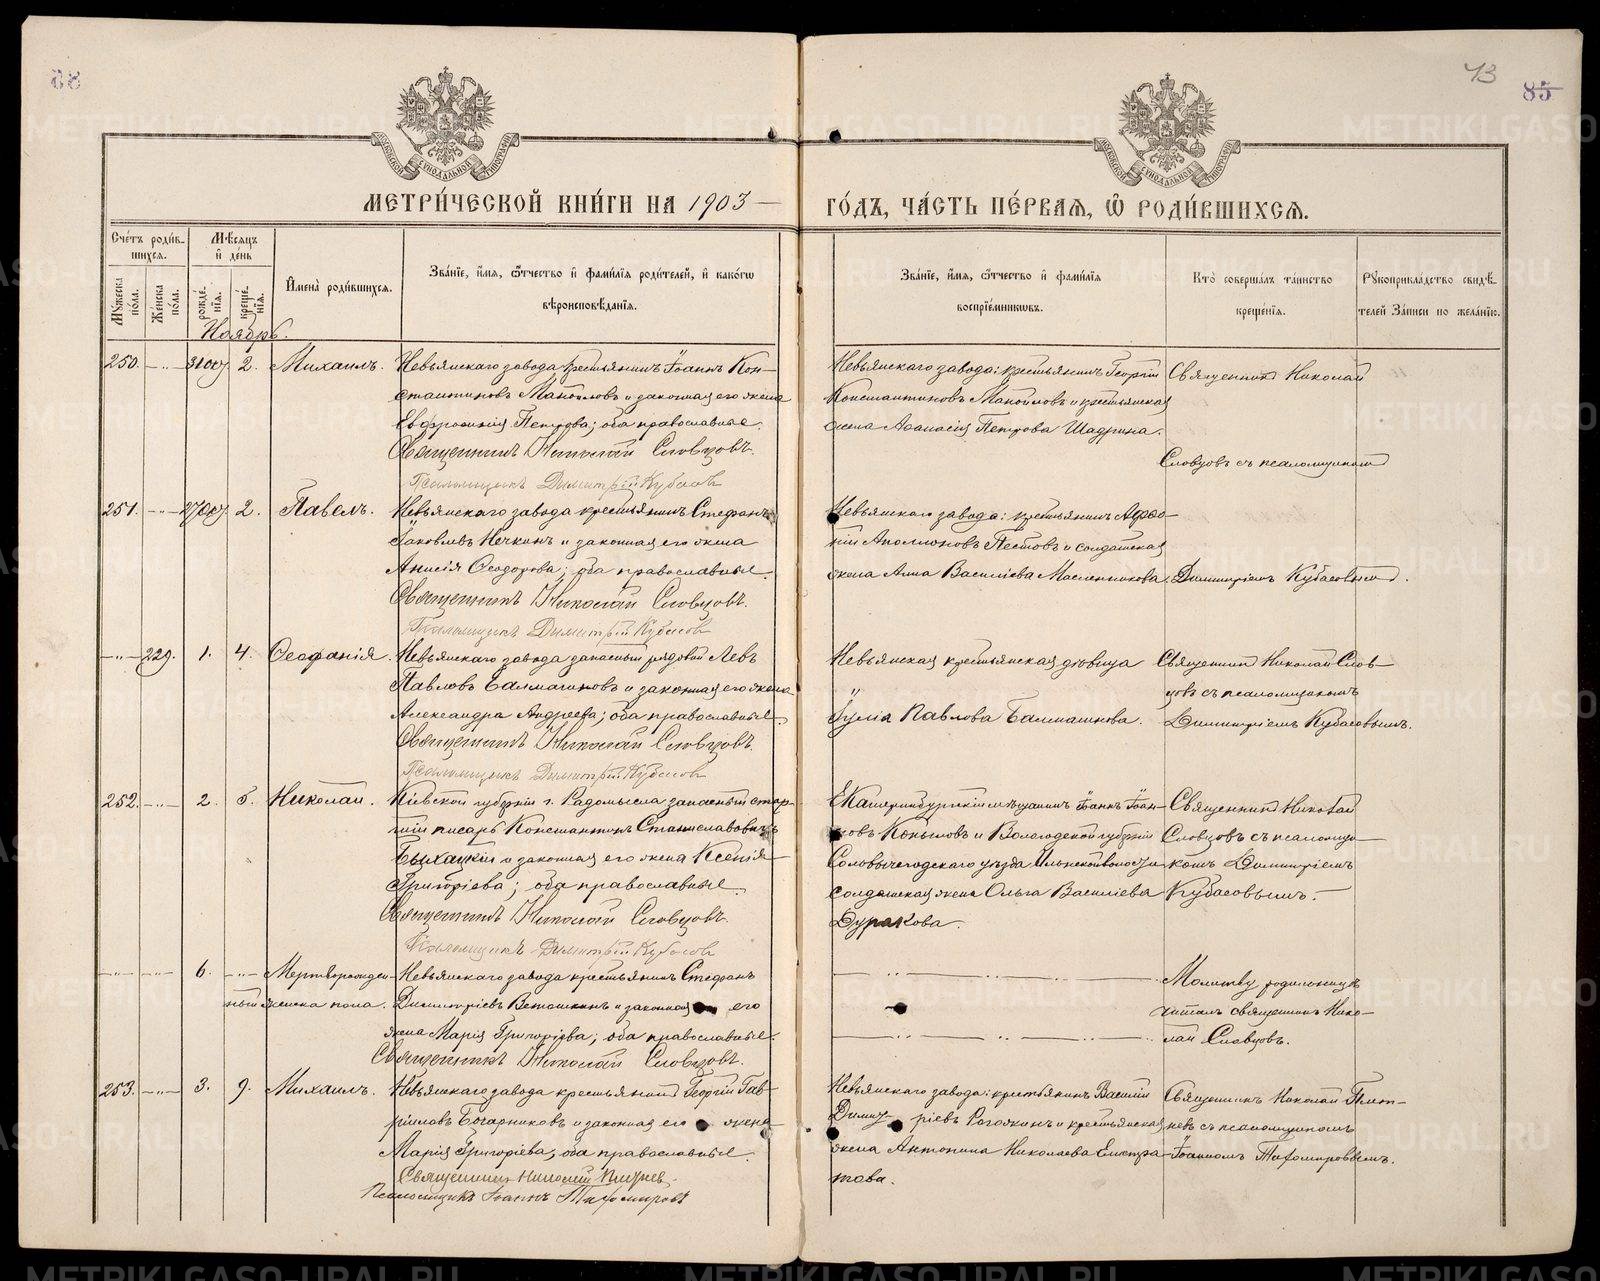 85
73
МОСКОВСКОЙ СѴНОДАЛЬНОЙ ТИПОГРАФІИ
МОСКОВСКОЙ СѴНОДАЛЬНОЙ ТИПОГРАФІИ
МЕТРИ́ЧЕСКОЙ КНИ́ГИ НА 1903 —
ГО́ДЪ, ЧА́СТЬ ПЕ́РВАЯ, Ѿ РОДИ́ВШИХСЯ.
Сче́тъ роди́в-
шихся.
Мꙋжеска по́ла.
Же́нска по́ла.
Мѣ́сяцъ и де́нь
рожде́нїѧ.
креще́нїѧ.
Имена̀ роди́вшихсѧ.
Зва́нїе, и́мѧ, ѻ́тчество и фами́лїѧ роди́телей, и како́гѡ
вѣроисповѣ́данїѧ.
Зва́нїе, и́мѧ, ѻ́тчество и фами́лїѧ
воспрїе́мникѡвъ.
Кто̀ соверша́лъ та́инство
креще́нїѧ.
Рꙋкоприкла́дство свидѣ́-
телей за́писи по жела́нїю.
Ноябрь.
250. —"— 31 окт. 2. Михаилъ.
Невьянскаго завода крестьянинъ Іоаннъ Кон-
стантиновъ Манойловъ и законная его жена
Евфросинія Петрова; оба православные.
Священникъ Николай Словцовъ.
Псаломщикъ Димитрій Кубасов
Невьянскаго завода: крестьянинъ Георгій
Константиновъ Манойловъ и крестьянская
жена Аѳанасія Петрова Шадрина.
Священник Николай
Словцовъ съ псаломщиком
251. —"— 27 окт. 2. Павелъ.
Невьянскаго завода крестьянинъ Стефанъ
Іаковлевъ Нечкинъ и законная его жена
Анисія Ѳеодорова; оба православные.
Священникъ Николай Словцовъ.
Псаломщикъ Димитрій Кубасов
Невьянскаго завода: крестьянинъ Афо-
ній Аполлоновъ Пестовъ и солдатская
жена Анна Василіева Масленникова.
Димитріемъ Кубасовым.
—"— 229. 1. 4. Ѳеофанія.
Невьянскаго завода запасный рядовой Левъ
Павловъ Балмашновъ и законная его жена
Александра Андреева; оба православные.
Священникъ Николай Словцовъ.
Псаломщикъ Димитрій Кубасов
Невьянская крестьянская дѣвица
Іулія Павлова Балмашнова.
Священник Николай Слов-
цовъ съ псаломщикомъ
Димитріемъ Кубасовымъ.
252. —"— 2. 5. Николай.
Кіевской губерніи г. Радомысла запасный стар-
шій писарь Константинъ Станиславовичъ
Быхацкій и законная его жена Ксенія
Григоріева; оба православные.
Священникъ Николай Словцовъ.
Псаломщикъ Димитрій Кубасов
Екатеринбургскій мѣщанинъ Іоаннъ Іоан-
новъ Копыловъ и Вологодской губерніи
Сольвычегодскаго уѣзда Ильинской волости
солдатская жена Ольга Василіева
Дуракова.
Священник Николай
Словцовъ съ псаломщи-
комъ Димитріемъ
Кубасовымъ.
—"— —"— 6. —"— Мертворожден-
ный женска пола.
Невьянскаго завода крестьянинъ Стефанъ
Димитріевъ Ветошкинъ и законная его
жена Марія Григоріева; оба православные.
Священникъ Николай Словцовъ.
Молитву родильницѣ
читалъ священник Нико-
лай Словцовъ.
253. —"— 3. 9. Михаилъ.
Невьянскаго завода крестьянинъ Георгій Гав-
ріиловъ Богарниковъ и законная его жена
Марія Григоріева; оба православные.
Священник Николай
Псаломщикъ Іоаннъ Тихомировъ
Невьянскаго завода: крестьянинъ Василій
Димит ріевъ Рогожинъ и крестьянская
жена Антонина Николаева Елистра-
това.
Священникъ Николай
съ псаломщикомъ
Іоанномъ Тихомировымъ.